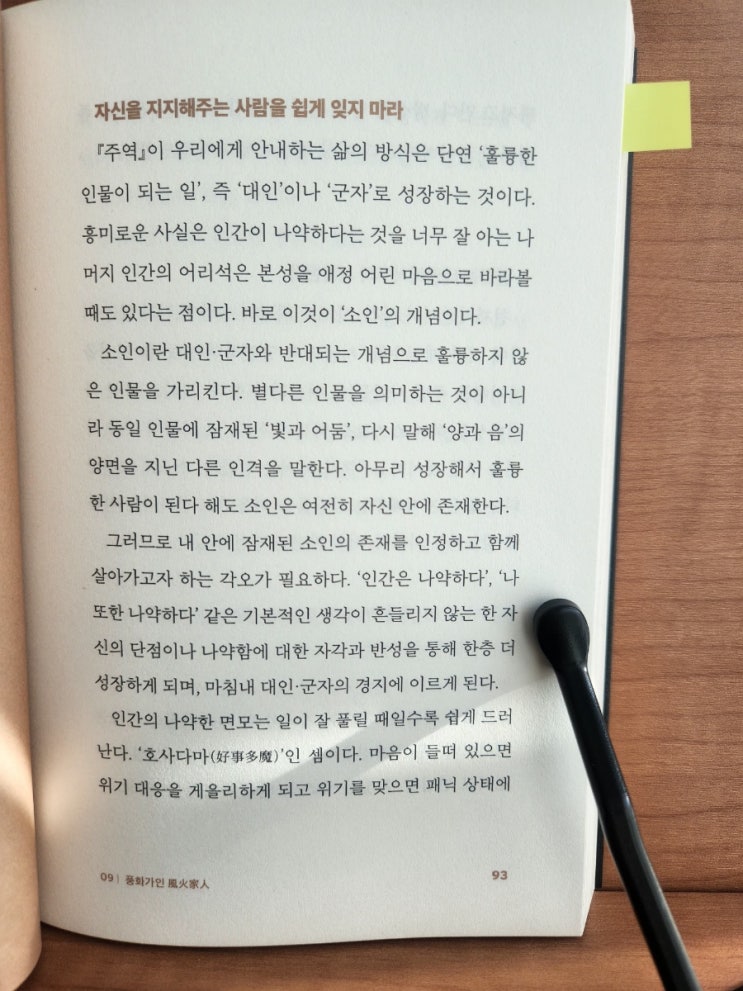 자신을 지지해주는 사람을 쉽게 잊지 마라
『주역』이 우리에게 안내하는 삶의 방식은 단연 ‘훌륭한
인물이 되는 일’, 즉 ‘대인’이나 ‘군자’로 성장하는 것이다.
흥미로운 사실은 인간이 나약하다는 것을 너무 잘 아는 나
머지 인간의 어리석은 본성을 애정 어린 마음으로 바라볼
때도 있다는 점이다. 바로 이것이 ‘소인’의 개념이다.
소인이란 대인·군자와 반대되는 개념으로 훌륭하지 않
은 인물을 가리킨다. 별다른 인물을 의미하는 것이 아니
라 동일 인물에 잠재된 ‘빛과 어둠’, 다시 말해 ‘양과 음’의
양면을 지닌 다른 인격을 말한다. 아무리 성장해서 훌륭
한 사람이 된다 해도 소인은 여전히 자신 안에 존재한다.
그러므로 내 안에 잠재된 소인의 존재를 인정하고 함께
살아가고자 하는 각오가 필요하다. ‘인간은 나약하다’, ‘나
또한 나약하다’ 같은 기본적인 생각이 흔들리지 않는 한 자
신의 단점이나 나약함에 대한 자각과 반성을 통해 한층 더
성장하게 되며, 마침내 대인·군자의 경지에 이르게 된다.
인간의 나약한 면모는 일이 잘 풀릴 때일수록 쉽게 드러
난다. ‘호사다마(好事多魔)’인 셈이다. 마음이 들떠 있으면
위기 대응을 게을리하게 되고 위기를 맞으면 패닉 상태에
09 | 풍화가인 風火家人 93